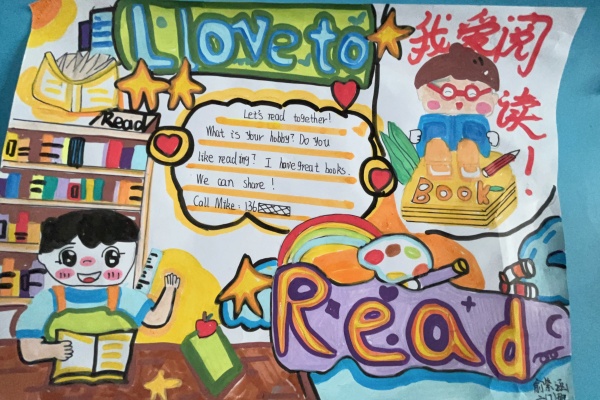 I Love to
我爱阅
读！
Read
Let's read together!
What is your hobby? Do you
like reading? I have great books.
We can share!
Call Mike: 136
BOOK
Read